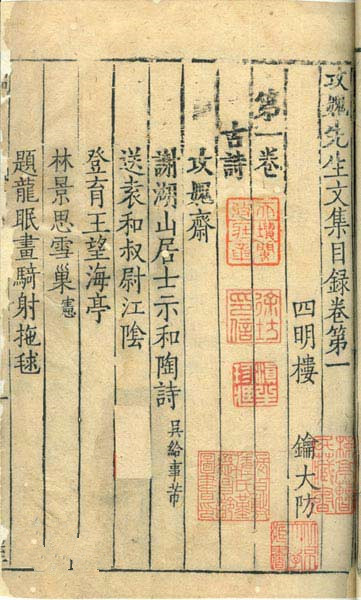 攻媿先生文集目錄卷第一
四明樓 鑰大防
第一卷
古詩
攻媿齋
謝湖山居士示和陶詩 吳給事芾
送袁和叔尉江陰
登育王望海亭
林景思雪巢 憲
題龍眠畫騎射抱毬